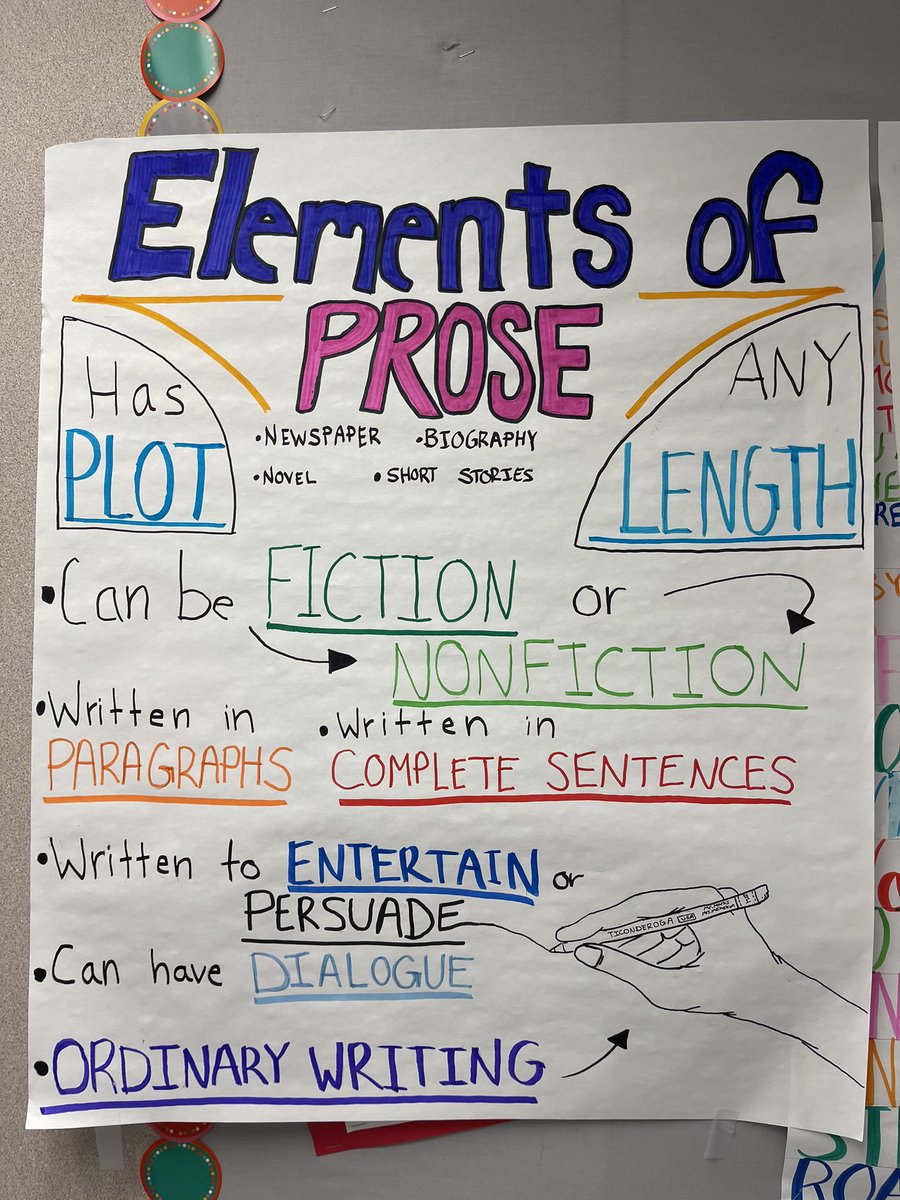 Elements of
PROSE
Has
PLOT
ANY
LENGTH
•NEWSPAPER •BIOGRAPHY
•NOVEL •SHORT STORIES
•Can be FICTION or
NONFICTION
•Written in
PARAGRAPHS
•Written in
COMPLETE SENTENCES
•Written to ENTERTAIN or
PERSUADE
TICONDEROGA USA
•Can have DIALOGUE
•ORDINARY WRITING
RE
ST
ROA